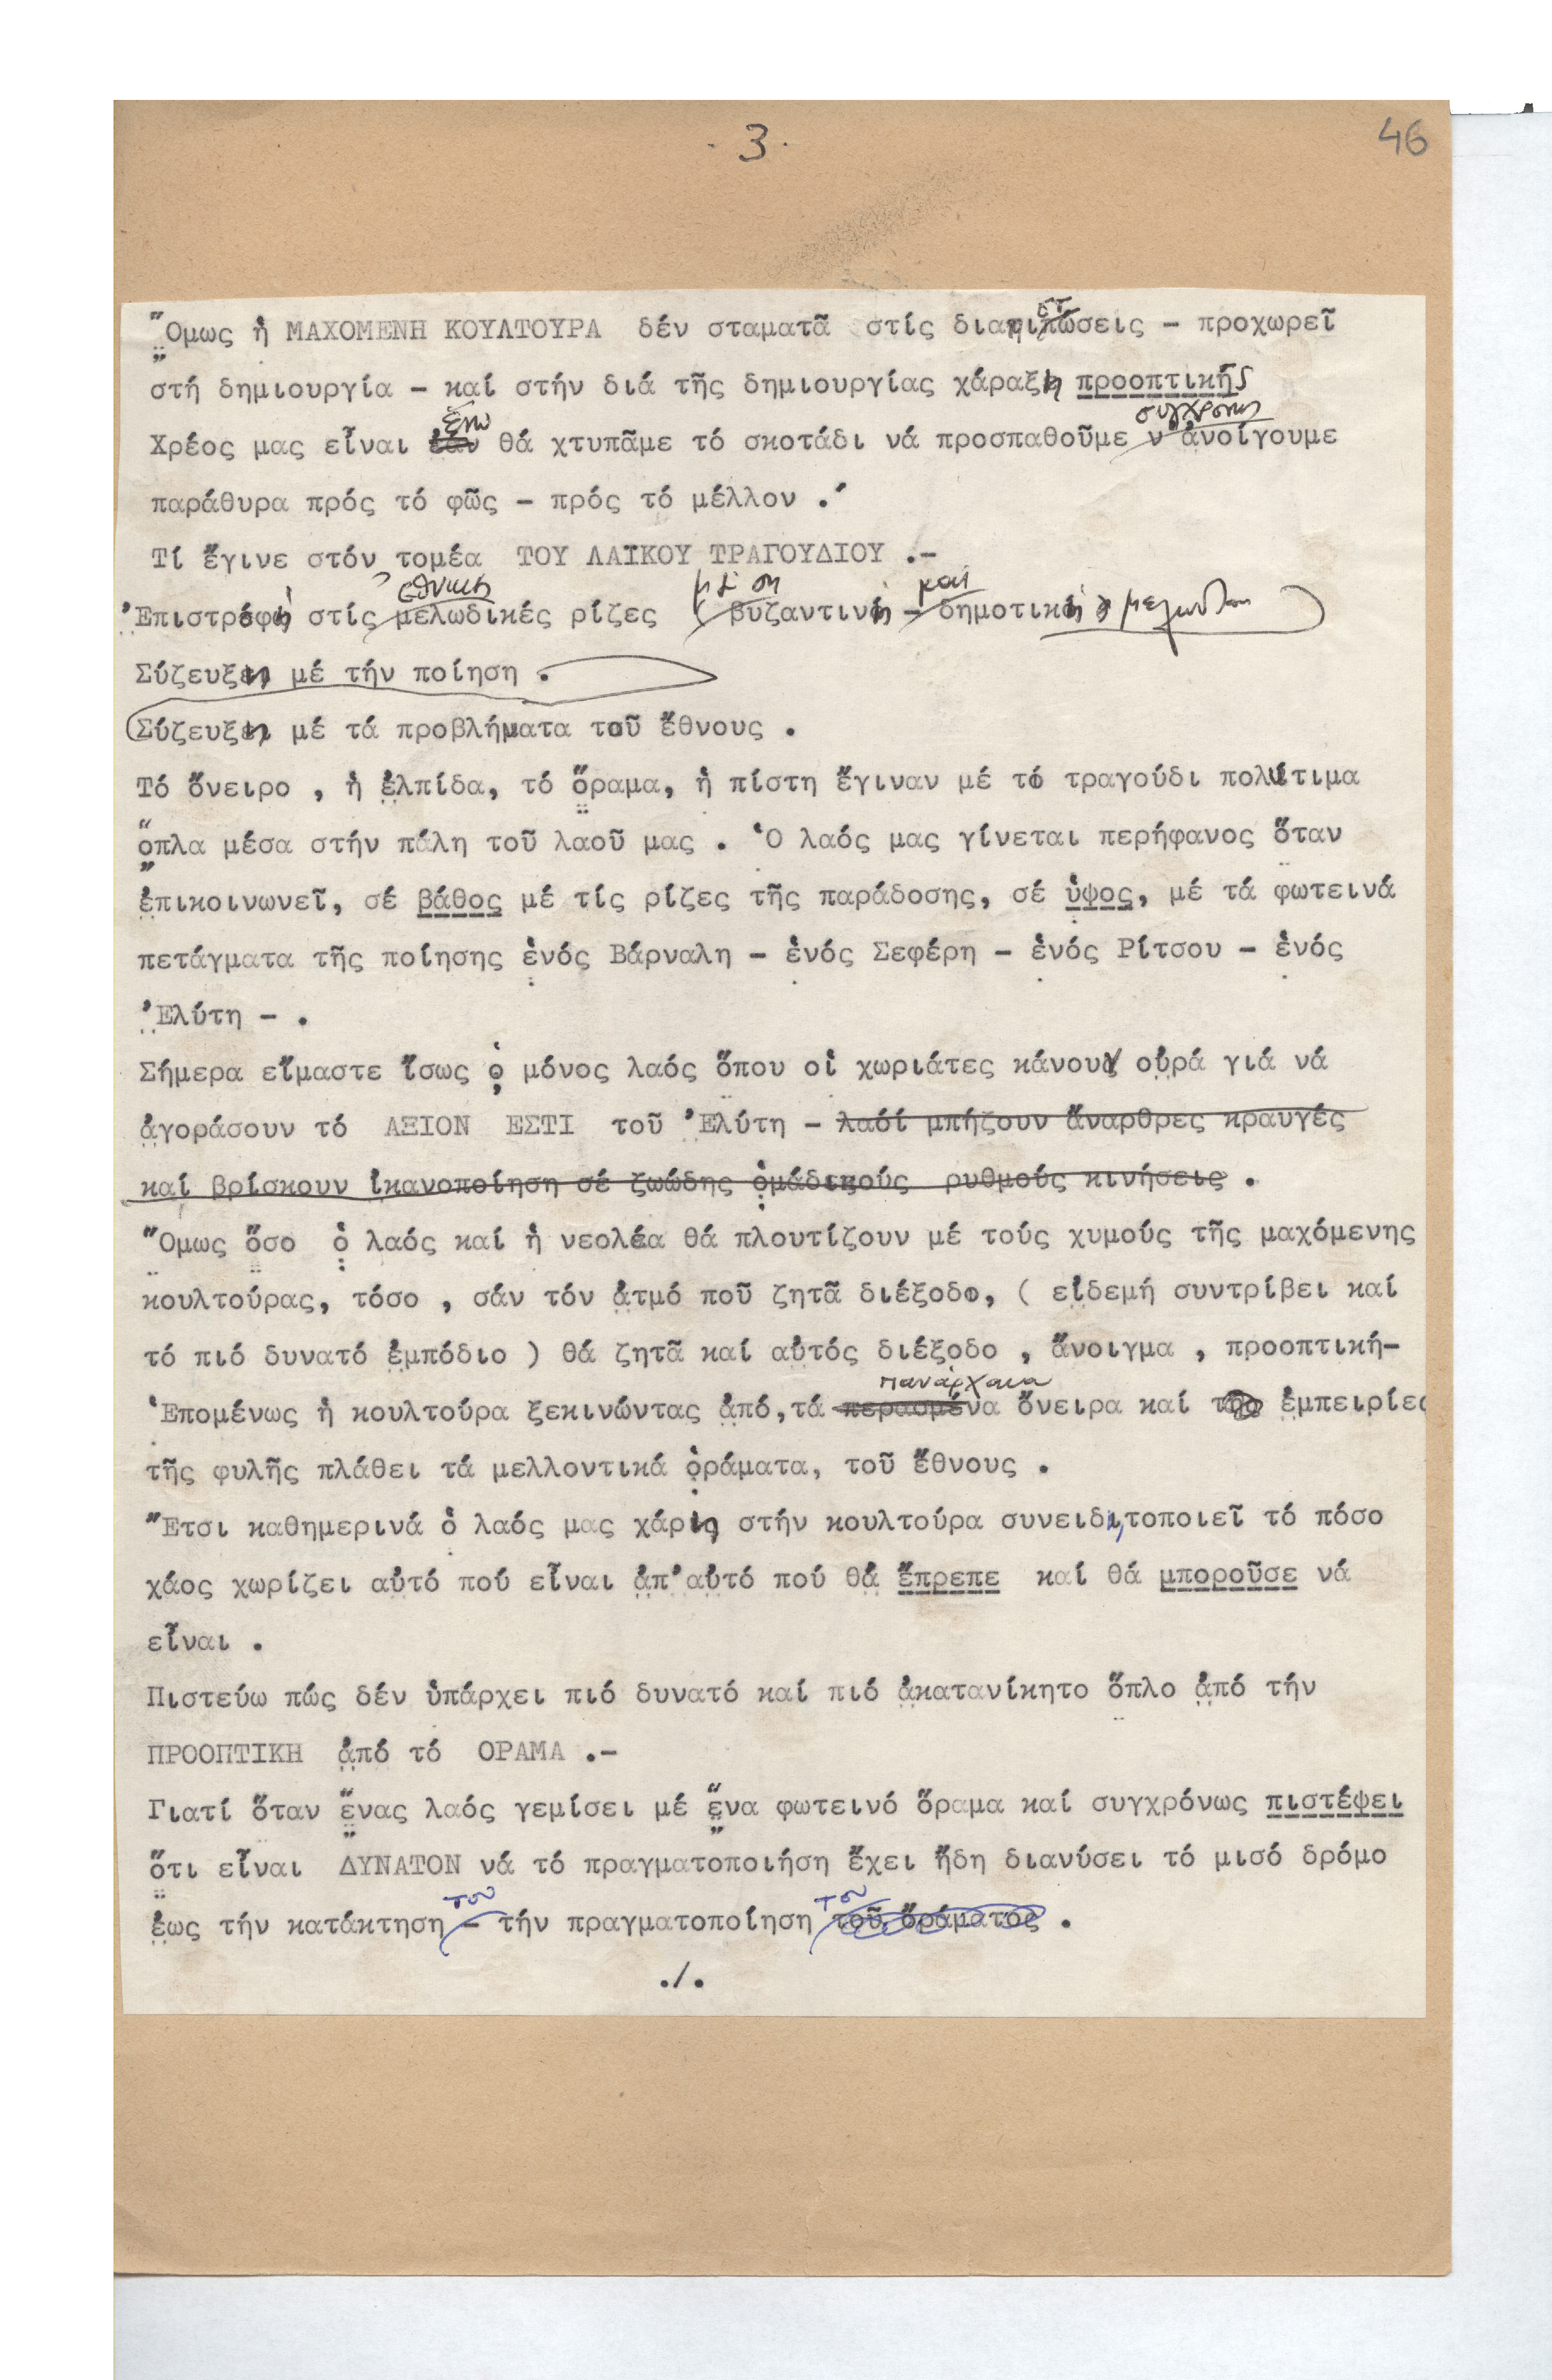 · 3 ·
46
Ὅμως ἡ ΜΑΧΟΜΕΝΗ ΚΟΥΛΤΟΥΡΑ δέν σταματᾶ στίς διαπιστώσεις – προχωρεῖ
στή δημιουργία – καί στήν διά τῆς δημιουργίας χάραξη προοπτικῆς
Χρέος μας εἶναι ἐνῶ θά χτυπᾶμε τό σκοτάδι νά προσπαθοῦμε συγχρόνως ν' ἀνοίγουμε
παράθυρα πρός τό φῶς – πρός τό μέλλον .
Τί ἔγινε στόν τομέα ΤΟΥ ΛΑΪΚΟΥ ΤΡΑΓΟΥΔΙΟΥ .–
Ἐπιστροφή στίς ἐθνικές μελωδικές ρίζες μέ τή βυζαντινή – καί δημοτική
Σύζευξη μέ τήν ποίηση .
Σύζευξη μέ τά προβλήματα τοῦ ἔθνους .
Τό ὄνειρο , ἡ ἐλπίδα, τό ὅραμα, ἡ πίστη ἔγιναν μέ τό τραγούδι πολύτιμα
ὅπλα μέσα στήν πάλη τοῦ λαοῦ μας . Ὁ λαός μας γίνεται περήφανος ὅταν
ἐπικοινωνεῖ, σέ βάθος μέ τίς ρίζες τῆς παράδοσης, σέ ὑψος, μέ τά φωτεινά
πετάγματα τῆς ποίησης ἑνός Βάρναλη – ἑνός Σεφέρη – ἑνός Ρίτσου – ἑνός
Ἐλύτη – .
Σήμερα εἴμαστε ἴσως ὁ μόνος λαός ὅπου οἱ χωριάτες κάνουν οὐρά γιά νά
ἀγοράσουν τό ΑΞΙΟΝ ΕΣΤΙ τοῦ Ἐλύτη – λαόί μπήζουν ἄναρθρες κραυγές
καί βρίσκουν ἱκανοποίηση σέ ζωώδης ὁμάδικούς ρυθμούς κινήσεις .
Ὅμως ὅσο ὁ λαός καί ἡ νεολέα θά πλουτίζουν μέ τούς χυμούς τῆς μαχόμενης
κουλτούρας, τόσο , σάν τόν ἀτμό ποῦ ζητᾶ διέξοδο, ( εἰδεμή συντρίβει καί
τό πιό δυνατό ἐμπόδιο ) θά ζητᾶ καί αὐτός διέξοδο , ἄνοιγμα , προοπτική–
Ἑπομένως ἡ κουλτούρα ξεκινώντας ἀπό,τά περασμένα πανάρχαια ὄνειρα καί ἐμπειρίες
τῆς φυλῆς πλάθει τά μελλοντικά ὁράματα, τοῦ ἔθνους .
Ἔτσι καθημερινά ὁ λαός μας χάρις στήν κουλτούρα συνειδητοποιεῖ τό πόσο
χάος χωρίζει αὐτό πού εἶναι ἀπ'αὐτό πού θά ἔπρεπε καί θά μποροῦσε νά
εἶναι .
Πιστεύω πώς δέν ὑπάρχει πιό δυνατό καί πιό ἀκατανίκητο ὅπλο ἀπό τήν
ΠΡΟΟΠΤΙΚΗ ἀπό τό ΟΡΑΜΑ .–
Γιατί ὅταν ἕνας λαός γεμίσει μέ ἕνα φωτεινό ὅραμα καί συγχρόνως πιστέψει
ὅτι εἶναι ΔΥΝΑΤΟΝ νά τό πραγματοποιήση ἔχει ἤδη διανύσει τό μισό δρόμο
ἑως τήν κατάκτηση του – τήν πραγματοποίηση του τοῦ ὁράματος .
./.